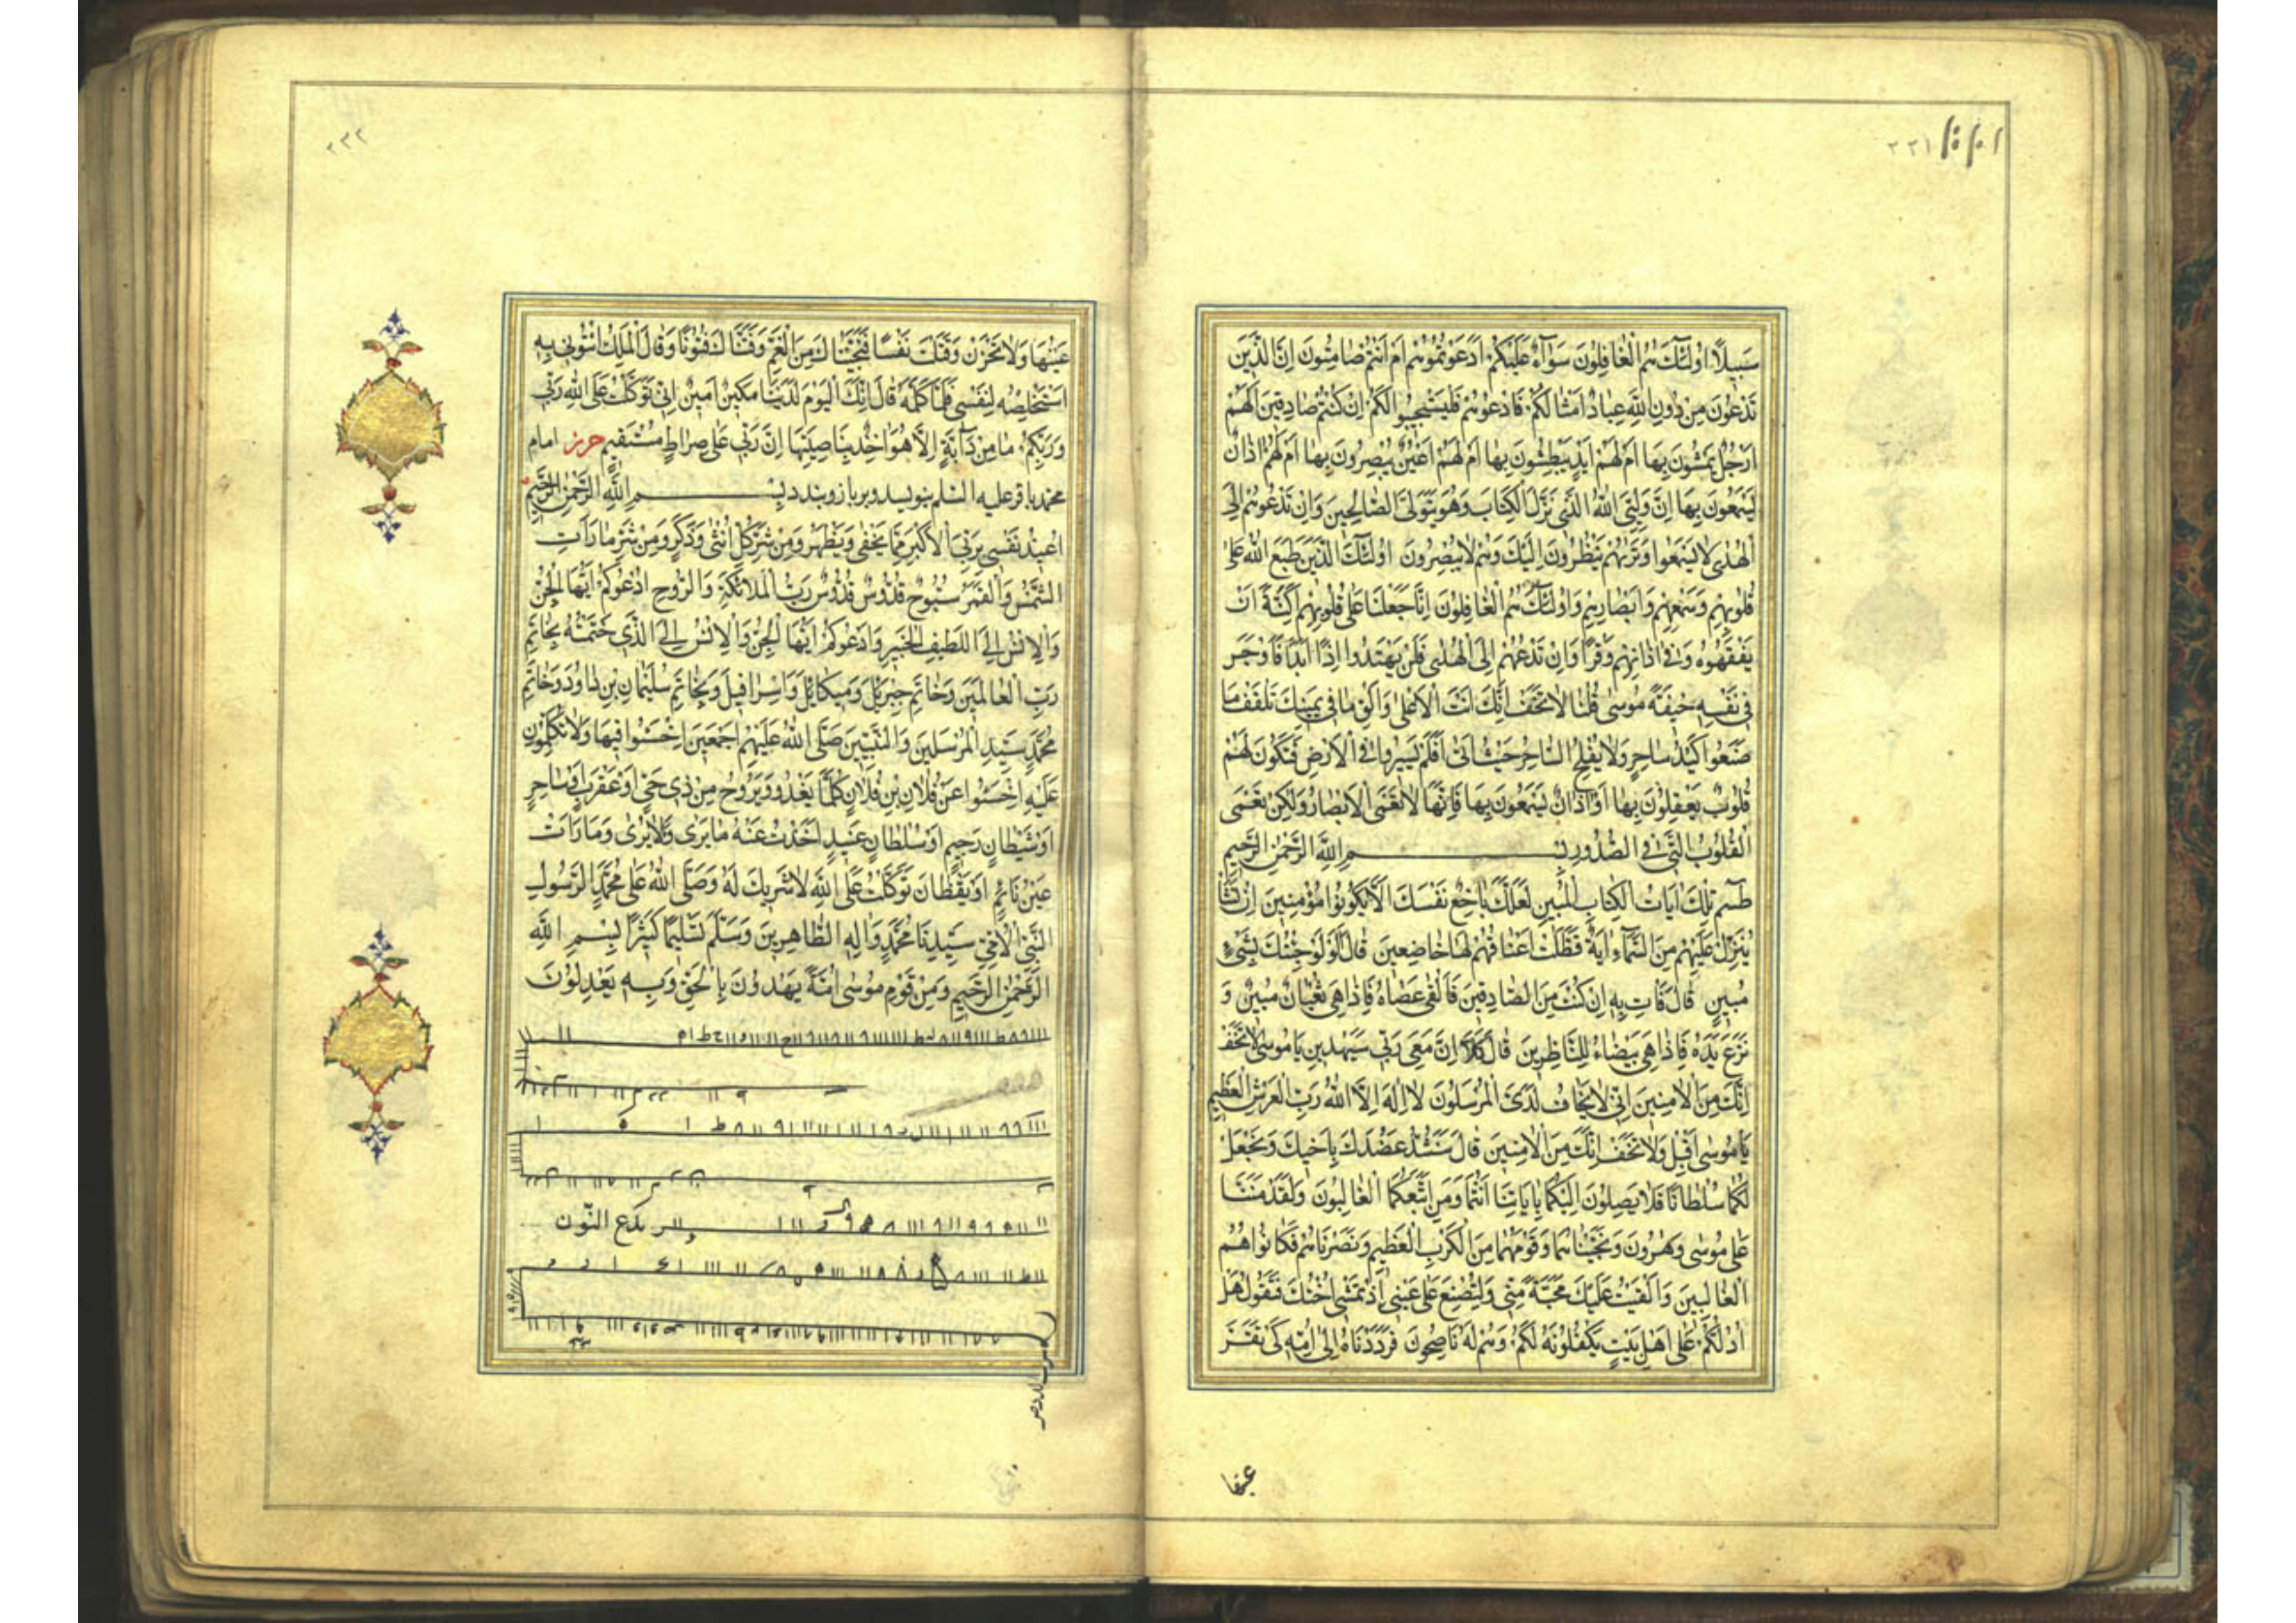 ٢٢١
سَبيلًا اُولٰئِكَ هُمُ الْغافِلُونَ سَوٰآءٌ عَلَيْكُمْ اَدَعَوْتُمُوهُمْ اَمْ اَنْتُمْ صٰامِتُونَ اِنَّ الَّذينَ
تَدْعُونَ مِنْ دُونِ اللّٰهِ عِبادٌ اَمْثالُكُمْ فَادْعُوهُمْ فَلْيَسْتَجيبُوا لَكُمْ اِنْ كُنْتُمْ صادِقينَ اَلَهُمْ
اَرْجُلٌ يَمْشُونَ بِهٰا اَمْ لَهُمْ اَيْدٍ يَبْطِشُونَ بِهٰا اَمْ لَهُمْ اَعْيُنٌ يُبْصِرُونَ بِهٰا اَمْ لَهُمْ اٰذانٌ
يَسْمَعُونَ بِهٰا اِنَّ وَلِيِّيَ اللّٰهُ الَّذى نَزَّلَ الْكِتابَ وَهُوَ يَتَوَلَّى الصّالِحينَ وَاِنْ تَدْعُوهُمْ اِلَى
الْهُدٰى لا يَسْمَعُوا وَتَرٰيهُمْ يَنْظُرُونَ اِلَيْكَ وَهُمْ لا يُبْصِرُونَ اُولٰئِكَ الَّذينَ طَبَعَ اللّٰهُ عَلىٰ
قُلُوبِهِمْ وَسَمْعِهِمْ وَاَبْصارِهِمْ وَاُولٰئِكَ هُمُ الْغافِلُونَ اِنّا جَعَلْنا عَلىٰ قُلُوبِهِمْ اَكِنَّةً اَنْ
يَفْقَهُوهُ وَفى اٰذانِهِمْ وَقْرًا وَاِنْ تَدْعُهُمْ اِلَى الْهُدٰى فَلَنْ يَهْتَدُوا اِذًا اَبَدًا فَاَوْجَسَ
فى نَفْسِهِ خيفَةً مُوسىٰ قُلْنا لا تَخَفْ اِنَّكَ اَنْتَ الْاَعْلىٰ وَاَلْقِ ما فى يَمينِكَ تَلْقَفْ ما
صَنَعُوا كَيْدُ ساحِرٍ وَلا يُفْلِحُ السّاحِرُ حَيْثُ اَتىٰ اَفَلَمْ يَسيرُوا فِى الْاَرْضِ فَتَكُونَ لَهُمْ
قُلُوبٌ يَعْقِلُونَ بِهٰا اَوْ اٰذانٌ يَسْمَعُونَ بِهٰا فَاِنَّهٰا لا تَعْمَى الْاَبْصارُ وَلٰكِنْ تَعْمَى
الْقُلُوبُ الَّتى فِى الصُّدُورِ بِسْمِ اللّٰهِ الرَّحْمٰنِ الرَّحيمِ
طٰسٓمٓ تِلْكَ اٰياتُ الْكِتابِ الْمُبينِ لَعَلَّكَ باخِعٌ نَفْسَكَ اَلّا يَكُونُوا مُؤْمِنينَ اِنْ نَشَأْ
نُنَزِّلْ عَلَيْهِمْ مِنَ السَّمآءِ اٰيَةً فَظَلَّتْ اَعْناقُهُمْ لَهٰا خاضِعينَ قالَ اَوَلَوْ جِئْتُكَ بِشَىْءٍ
مُبينٍ قالَ فَاْتِ بِهِ اِنْ كُنْتَ مِنَ الصّادِقينَ فَاَلْقىٰ عَصاهُ فَاِذا هِىَ ثُعْبانٌ مُبينٌ وَ
نَزَعَ يَدَهُ فَاِذا هِىَ بَيْضاءُ لِلنّاظِرينَ قالَ كَلّا اِنَّ مَعِىَ رَبّى سَيَهْدينِ يا مُوسىٰ لا تَخَفْ
اِنَّكَ مِنَ الْاٰمِنينَ اِنّى لا يَخافُ لَدَىَّ الْمُرْسَلُونَ لا اِلٰهَ اِلَّا اللّٰهُ رَبُّ الْعَرْشِ الْعَظيمِ
يا مُوسىٰ اَقْبِلْ وَلا تَخَفْ اِنَّكَ مِنَ الْاٰمِنينَ قالَ سَنَشُدُّ عَضُدَكَ بِاَخيكَ وَنَجْعَلُ
لَكُما سُلْطانًا فَلا يَصِلُونَ اِلَيْكُما بِاٰياتِنا اَنْتُما وَمَنِ اتَّبَعَكُمَا الْغالِبُونَ وَلَقَدْ مَنَنّا
عَلىٰ مُوسىٰ وَهٰرُونَ وَنَجَّيْناهُما وَقَوْمَهُما مِنَ الْكَرْبِ الْعَظيمِ وَنَصَرْناهُمْ فَكانُوا هُمُ
الْغالِبينَ وَاَلْقَيْتُ عَلَيْكَ مَحَبَّةً مِنّى وَلِتُصْنَعَ عَلىٰ عَيْنى اِذْ تَمْشى اُخْتُكَ فَتَقُولُ هَلْ
اَدُلُّكُمْ عَلىٰ اَهْلِ بَيْتٍ يَكْفُلُونَهُ لَكُمْ وَهُمْ لَهُ ناصِحُونَ فَرَدَدْناهُ اِلىٰ اُمِّهِ كَىْ تَقَرَّ
عينها
٢٢٢
عَيْنُهٰا وَلا تَحْزَنَ وَقَتَلْتَ نَفْسًا فَنَجَّيْناكَ مِنَ الْغَمِّ وَفَتَنّاكَ فُتُونًا وَقالَ الْمَلِكُ ائْتُونى بِهِ
اَسْتَخْلِصْهُ لِنَفْسى فَلَمّا كَلَّمَهُ قالَ اِنَّكَ الْيَوْمَ لَدَيْنا مَكينٌ اَمينٌ اِنّى تَوَكَّلْتُ عَلَى اللّٰهِ رَبّى
وَرَبِّكُمْ ما مِنْ دآبَّةٍ اِلّا هُوَ اٰخِذٌ بِناصِيَتِهٰا اِنَّ رَبّى عَلىٰ صِراطٍ مُسْتَقيمٍ حرز امام
محمد باقر عليه السلم بنويسد و بر بازو بندد بِسْمِ اللّٰهِ الرَّحْمٰنِ الرَّحيمِ
اُعيذُ نَفْسى بِرَبِّىَ الْاَكْبَرِ مِمّا يَخْفىٰ وَيَظْهَرُ وَمِنْ شَرِّ كُلِّ اُنْثىٰ وَذَكَرٍ وَمِنْ شَرِّ ما رَاَتِ
الشَّمْسُ وَالْقَمَرُ سُبُّوحٌ قُدُّوسٌ قُدُّوسٌ رَبُّ الْمَلائِكَةِ وَالرُّوحِ اَدْعُوكُمْ اَيُّهَا الْجِنُّ
وَالْاِنْسُ اِلَى اللَّطيفِ الْخَبيرِ وَاَدْعُوكُمْ اَيُّهَا الْجِنُّ وَالْاِنْسُ اِلَى الَّذى خَتَمْتُهُ بِخاتَمِ
رَبِّ الْعالَمينَ وَخاتَمِ جِبْريلَ وَميكائيلَ وَاِسْرافيلَ وَبِخاتَمِ سُلَيْمانَ بْنِ داوُدَ وَخاتَمِ
مُحَمَّدٍ سَيِّدِ الْمُرْسَلينَ وَالنَّبِيّينَ صَلَّى اللّٰهُ عَلَيْهِمْ اَجْمَعينَ اِخْسَئُوا فيهٰا وَلا تُكَلِّمُونِ
عَلَيْهِ اِخْسَئُوا عَنْ فُلانِ بْنِ فُلانٍ كُلَّما يَغْدُو وَيَرُوحُ مِنْ ذى حَىٍّ اَوْ عَقْرَبٍ اَوْ ساحِرٍ
اَوْ شَيْطانٍ رَجيمٍ اَوْ سُلْطانٍ عَنيدٍ اَخَذْتُ عَنْهُ ما يَرىٰ وَلا يَرىٰ وَما رَاَتْ
عَيْنُ نائِمٍ اَوْ يَقْظانَ تَوَكَّلْتُ عَلَى اللّٰهِ لا شَريكَ لَهُ وَصَلَّى اللّٰهُ عَلىٰ مُحَمَّدٍ الرَّسُولِ
النَّبِىِّ الْاُمِّىِّ سَيِّدِنا مُحَمَّدٍ وَاٰلِهِ الطّاهِرينَ وَسَلَّمَ تَسْليمًا كَثيرًا بِسْمِ اللّٰهِ
الرَّحْمٰنِ الرَّحيمِ وَمِنْ قَوْمِ مُوسىٰ اُمَّةٌ يَهْدُونَ بِالْحَقِّ وَبِهِ يَعْدِلُونَ